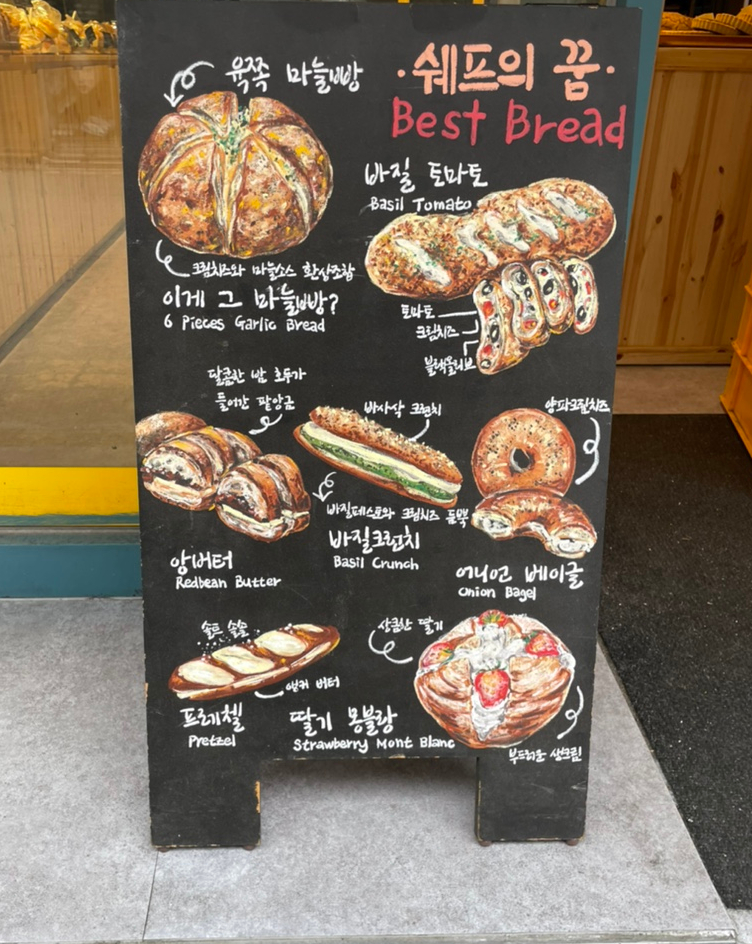 ·쉐프의 꿈·
Best Bread
육쪽 마늘빵
크림치즈와 마늘소스 환상조합
이게 그 마늘빵?
6 Pieces Garlic Bread
바질 토마토
Basil Tomato
토마토
크림치즈
블랙올리브
달콤한 밤 호두가
들어간 팥앙금
앙버터
Redbean Butter
바사삭 크런치
바질페스토와 크림치즈 듬뿍
바질크런치
Basil Crunch
양파크림치즈
어니언 베이글
Onion Bagel
솔트 솔솔
앵커 버터
프레첼
Pretzel
상큼한 딸기
딸기 몽블랑
Strawberry Mont Blanc
부드러운 생크림